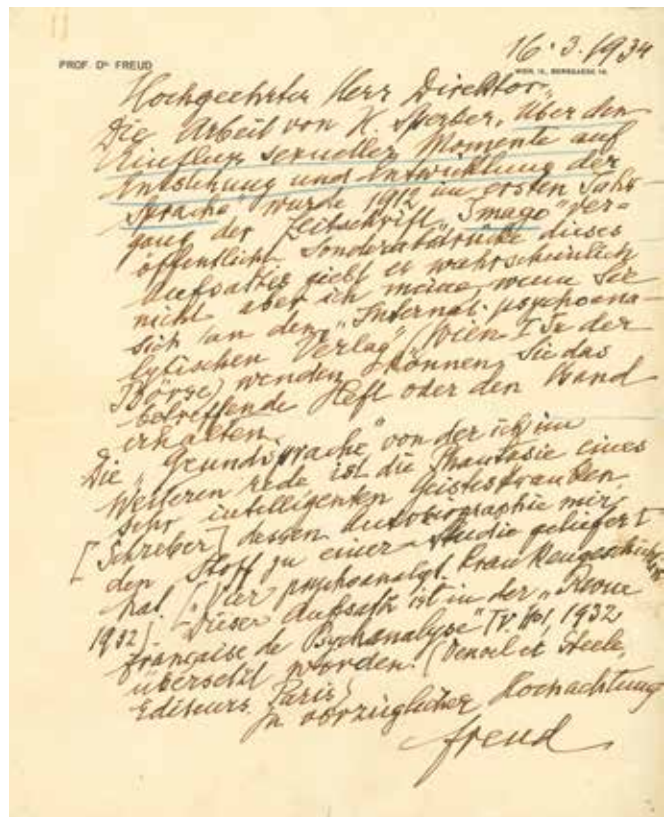 16.3.1934
PROF. Dr. FREUD
WIEN, IX., BERGGASSE 19.
Hochgeehrter Herr Direktor,
Die Arbeit von H. Sperber, „Über den
Einfluss sexueller Momente auf
Entstehung und Entwicklung der
Sprache" wurde 1912 im ersten Jahr-
gang der Zeitschrift „Imago" ver-
öffentlicht Sonderabdrücke dieses
Aufsatzes giebt es wahrscheinlich
nicht aber ich meine, wenn Sie
sich an den „Internat. psychoana-
lytischen Verlag" (Wien I In der
Börse) wenden, können Sie das
betreffende Heft oder den Band
erhalten.
Die „Grundsprache" von der ich im
Weiteren rede ist die Phantasie eines
sehr intelligenten Geisteskranken
[Schreber] dessen Autobiographie mir
den Stoff zu einer Studie geliefert
hat. [Vier psychoanalyt. Krankengeschichten
1932]. Dieser Aufsatz ist in der „Revue
Française de Psychanalyse" T.V. No1, 1932
übersetzt worden. (Denoel et Steele,
Editeurs. Paris)
In vorzüglicher Hochachtung
Freud